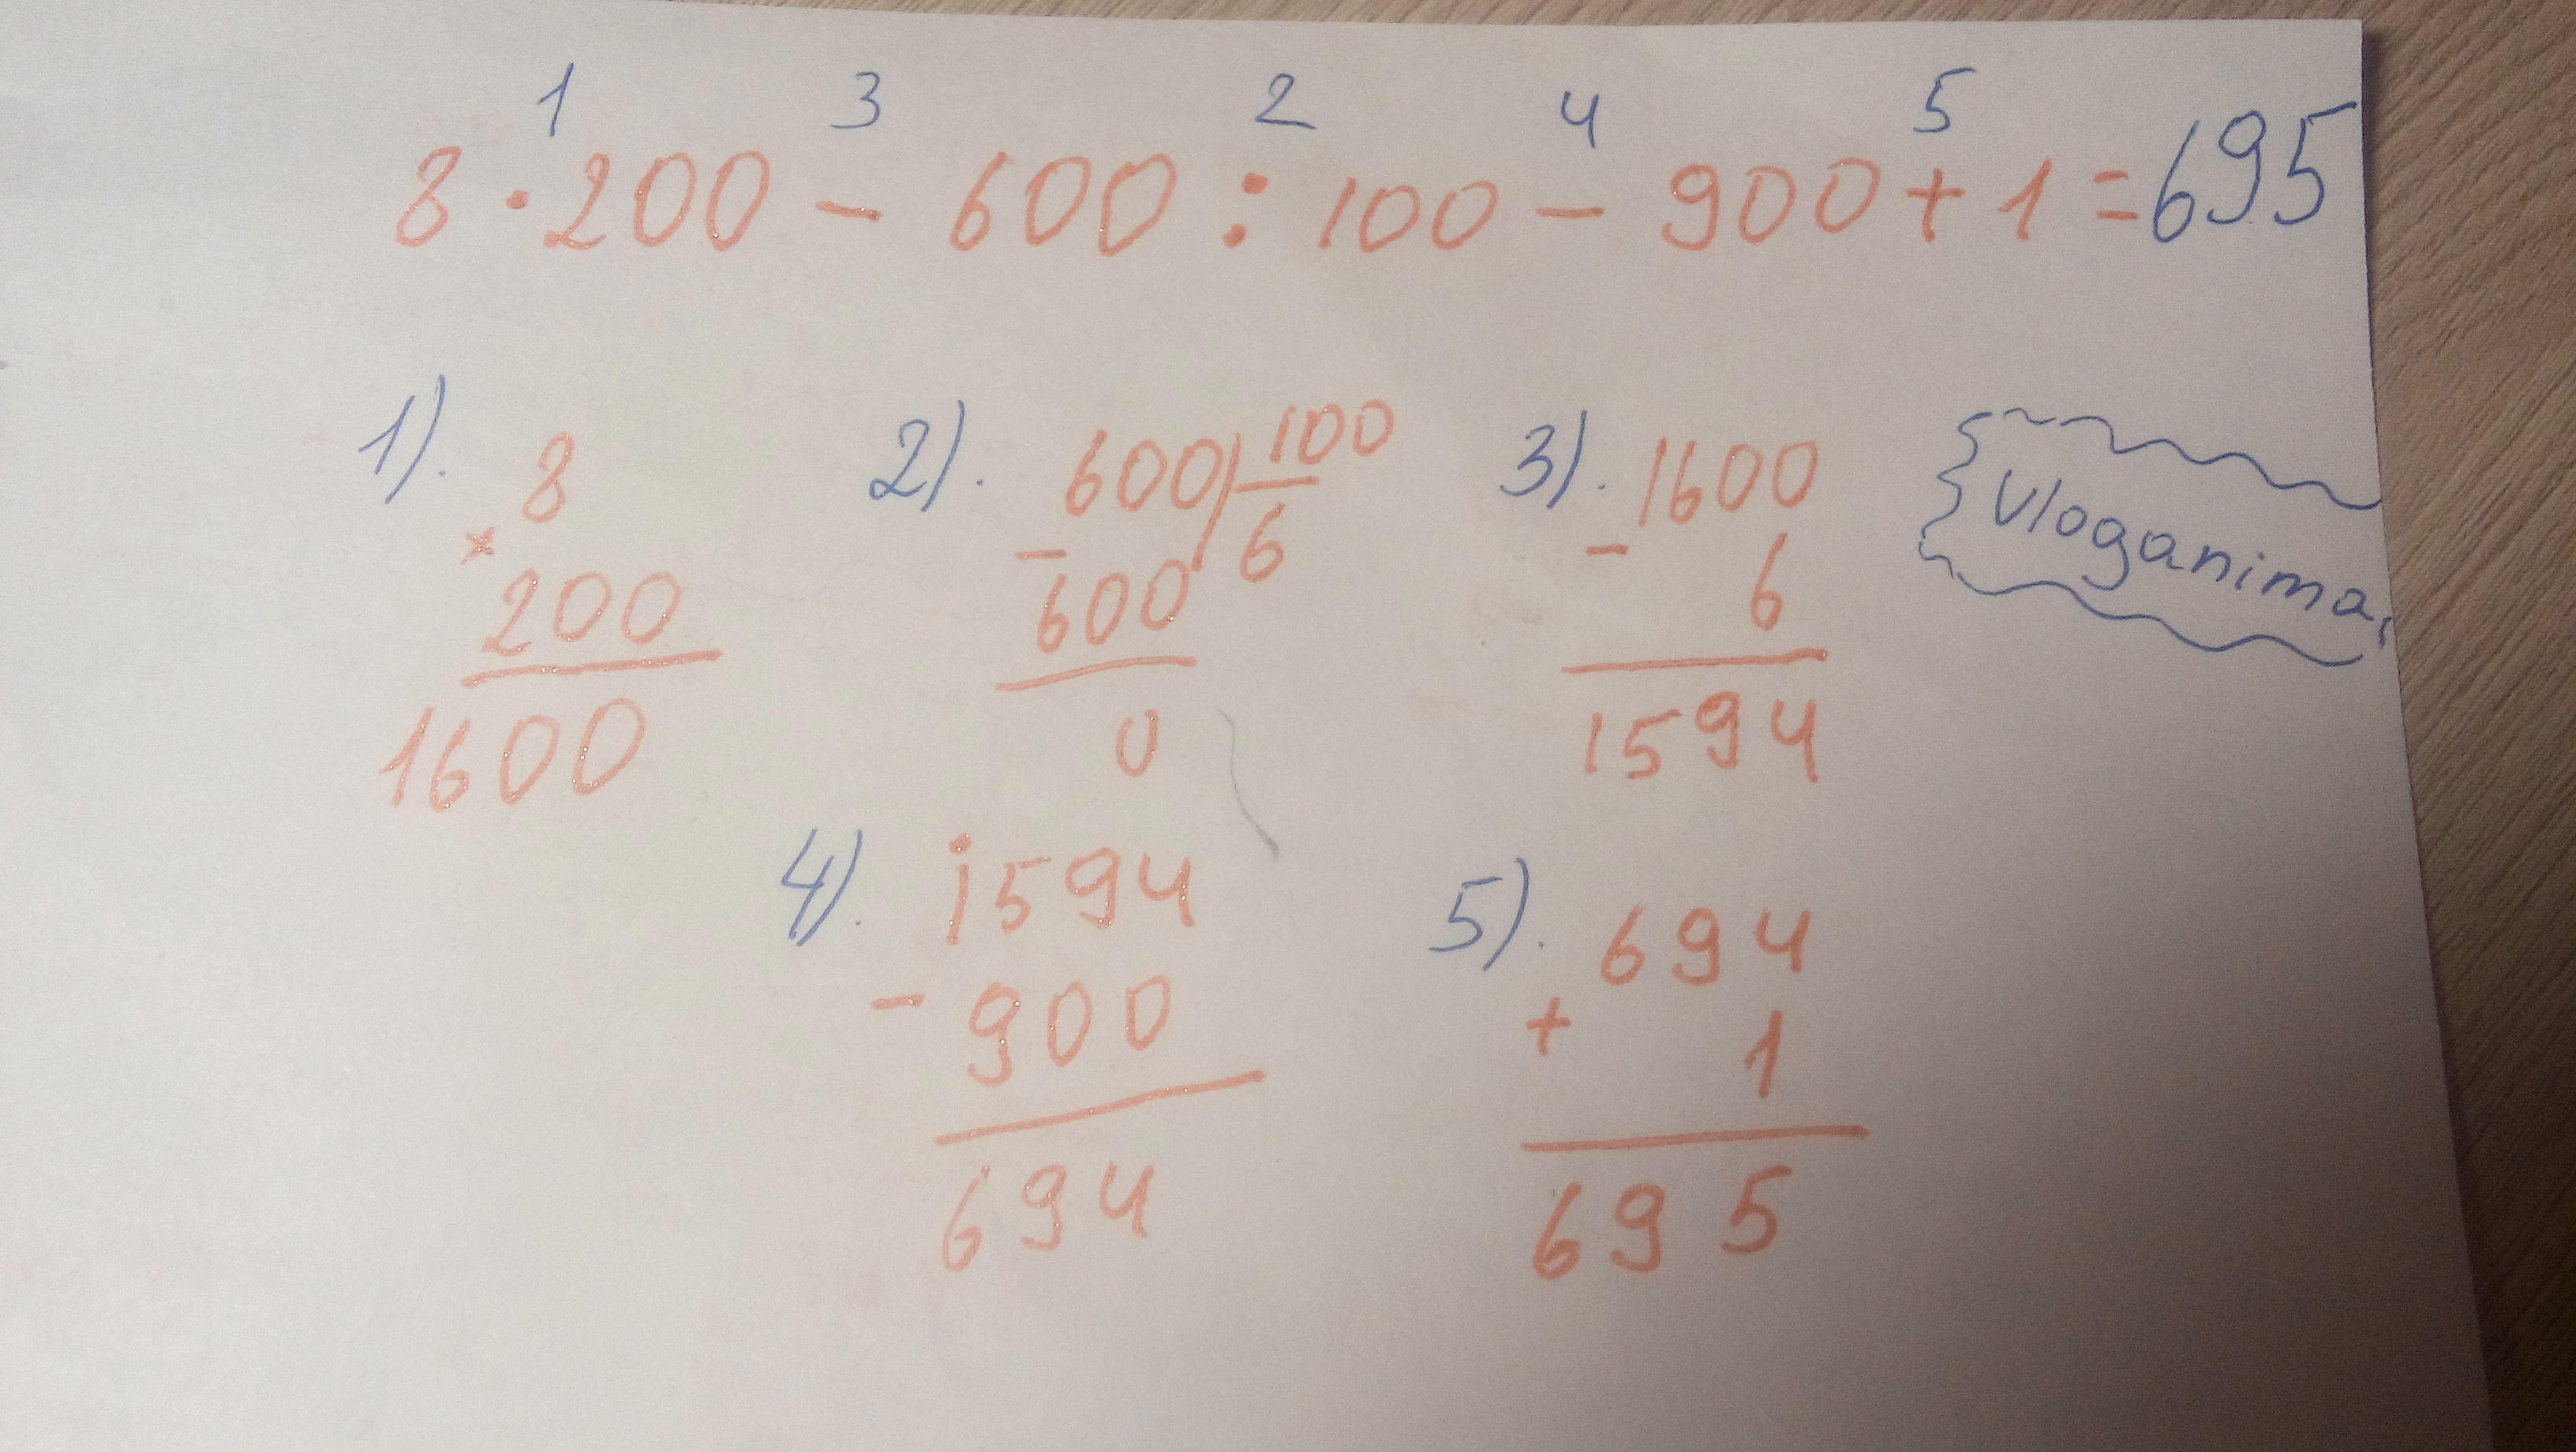 1 3 2 4 5
8 · 200 − 600 : 100 − 900 + 1 = 695
1). 8
×
200
1600
2). 600 100
− 6
600
0
3). 1600
−
6
1594
Vloganima,
4). 1594
−
900
694
5). 694
+
1
695